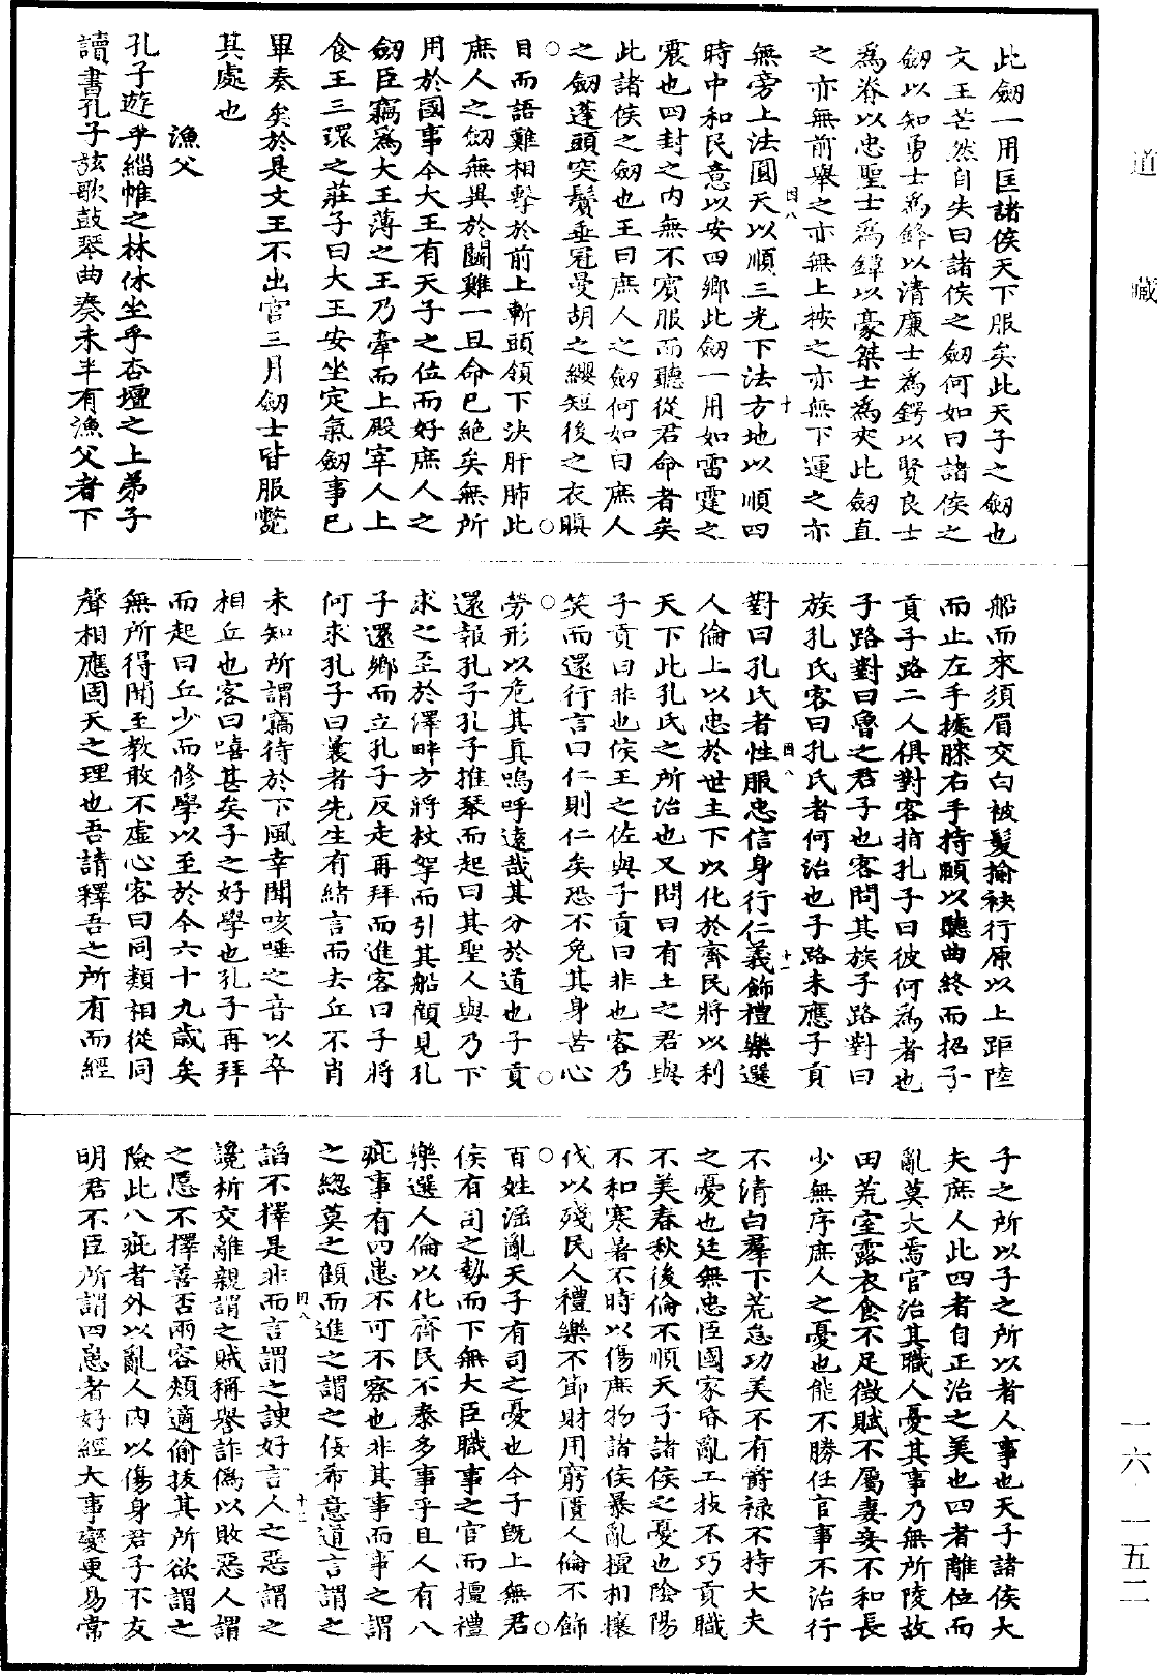 道藏
此劒一用匡諸侯天下服矣此天子之劒也
文王芒然自失曰諸侯之劒何如曰諸侯之
劒以知勇士為鋒以清廉士為鍔以賢良士
為脊以忠聖士為鐔以豪桀士為夾此劒直
之亦無前舉之亦無上按之亦無下運之亦
四八 十
無旁上法圓天以順三光下法方地以順四
時中和民意以安四鄉此劒一用如雷霆之
震也四封之内無不賓服而聽從君命者矣
此諸侯之劒也王曰庶人之劒何如曰庶人
之劒蓬頭突鬢垂冠曼胡之纓短後之衣瞋
○ ○
目而語難相擊於前上斬頭領下決肝肺此
庶人之劒無異於鬬雞一旦命已絶矣無所
用於國事今大王有天子之位而好庶人之
劒臣竊為大王薄之王乃牽而上殿宰人上
食王三環之莊子曰大王安坐定氣劒事已
畢奏矣於是文王不出宫三月劒士皆服斃
其處也
漁父
孔子遊乎緇帷之林休坐乎杏壇之上弟子
讀書孔子弦歌鼓琴曲奏未半有漁父者下
船而來須眉交白被髮揄袂行原以上距陸
而止左手據膝右手持頤以聽曲終而招子
貢子路二人俱對客指孔子曰彼何為者也
子路對曰魯之君子也客問其族子路對曰
族孔氏客曰孔氏者何治也子路未應子貢
四八 十一
對曰孔氏者性服忠信身行仁義飾禮樂選
人倫上以忠於世主下以化於齊民將以利
天下此孔氏之所治也又問曰有土之君與
子貢曰非也侯王之佐與子貢曰非也客乃
笑而還行言曰仁則仁矣恐不免其身苦心
○ ○
勞形以危其真嗚呼遠哉其分於道也子貢
還報孔子孔子推琴而起曰其聖人與乃下
求之至於澤畔方將杖拏而引其船顧見孔
子還鄉而立孔子反走再拜而進客曰子將
何求孔子曰曩者先生有緒言而去丘不肖
未知所謂竊待於下風幸聞咳唾之音以卒
相丘也客曰嘻甚矣子之好學也孔子再拜
而起曰丘少而修學以至於今六十九歲矣
無所得聞至教敢不虚心客曰同類相從同
聲相應固天之理也吾請釋吾之所有而經
子之所以子之所以者人事也天子諸侯大
夫庶人此四者自正治之美也四者離位而
亂莫大焉官治其職人憂其事乃無所陵故
田荒室露衣食不足徵賦不屬妻妾不和長
少無序庶人之憂也能不勝任官事不治行
不清白羣下荒怠功美不有爵禄不持大夫
之憂也廷無忠臣國家昏亂工技不巧貢職
不美春秋後倫不順天子諸侯之憂也陰陽
不和寒暑不時以傷庶物諸侯暴亂擅相攘
伐以殘民人禮樂不節財用窮匱人倫不飭
○ ○
百姓淫亂天子有司之憂也今子既上無君
侯有司之勢而下無大臣職事之官而擅禮
樂選人倫以化齊民不泰多事乎且人有八
疵事有四患不可不察也非其事而事之謂
之總莫之顧而進之謂之佞希意道言謂之
四八 十二
謟不擇是非而言謂之諛好言人之惡謂之
讒析交離親謂之賊稱譽詐偽以敗惡人謂
之慝不擇善否兩容頰適偷拔其所欲謂之
險此八疵者外以亂人内以傷身君子不友
明君不臣所謂四患者好經大事變更易常
一六·一五二